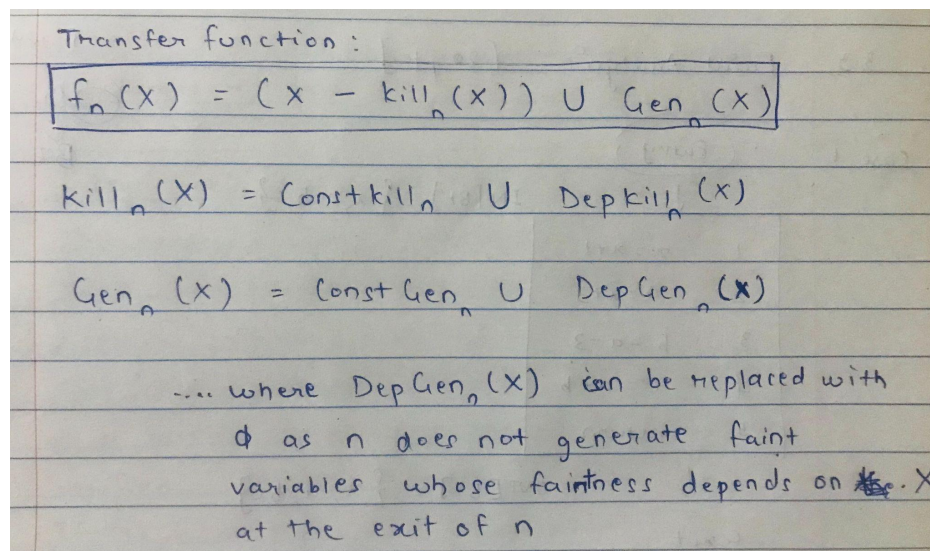 Transfer function :
fn (X) = (X - killn (X)) ∪ Genn (X)
killn (X) = Constkilln ∪ Depkilln (X)
Genn (X) = ConstGenn ∪ DepGenn (X)
.... where DepGenn (X) can be replaced with
ϕ as n does not generate faint
variables whose faintness depends on . X
at the exit of n